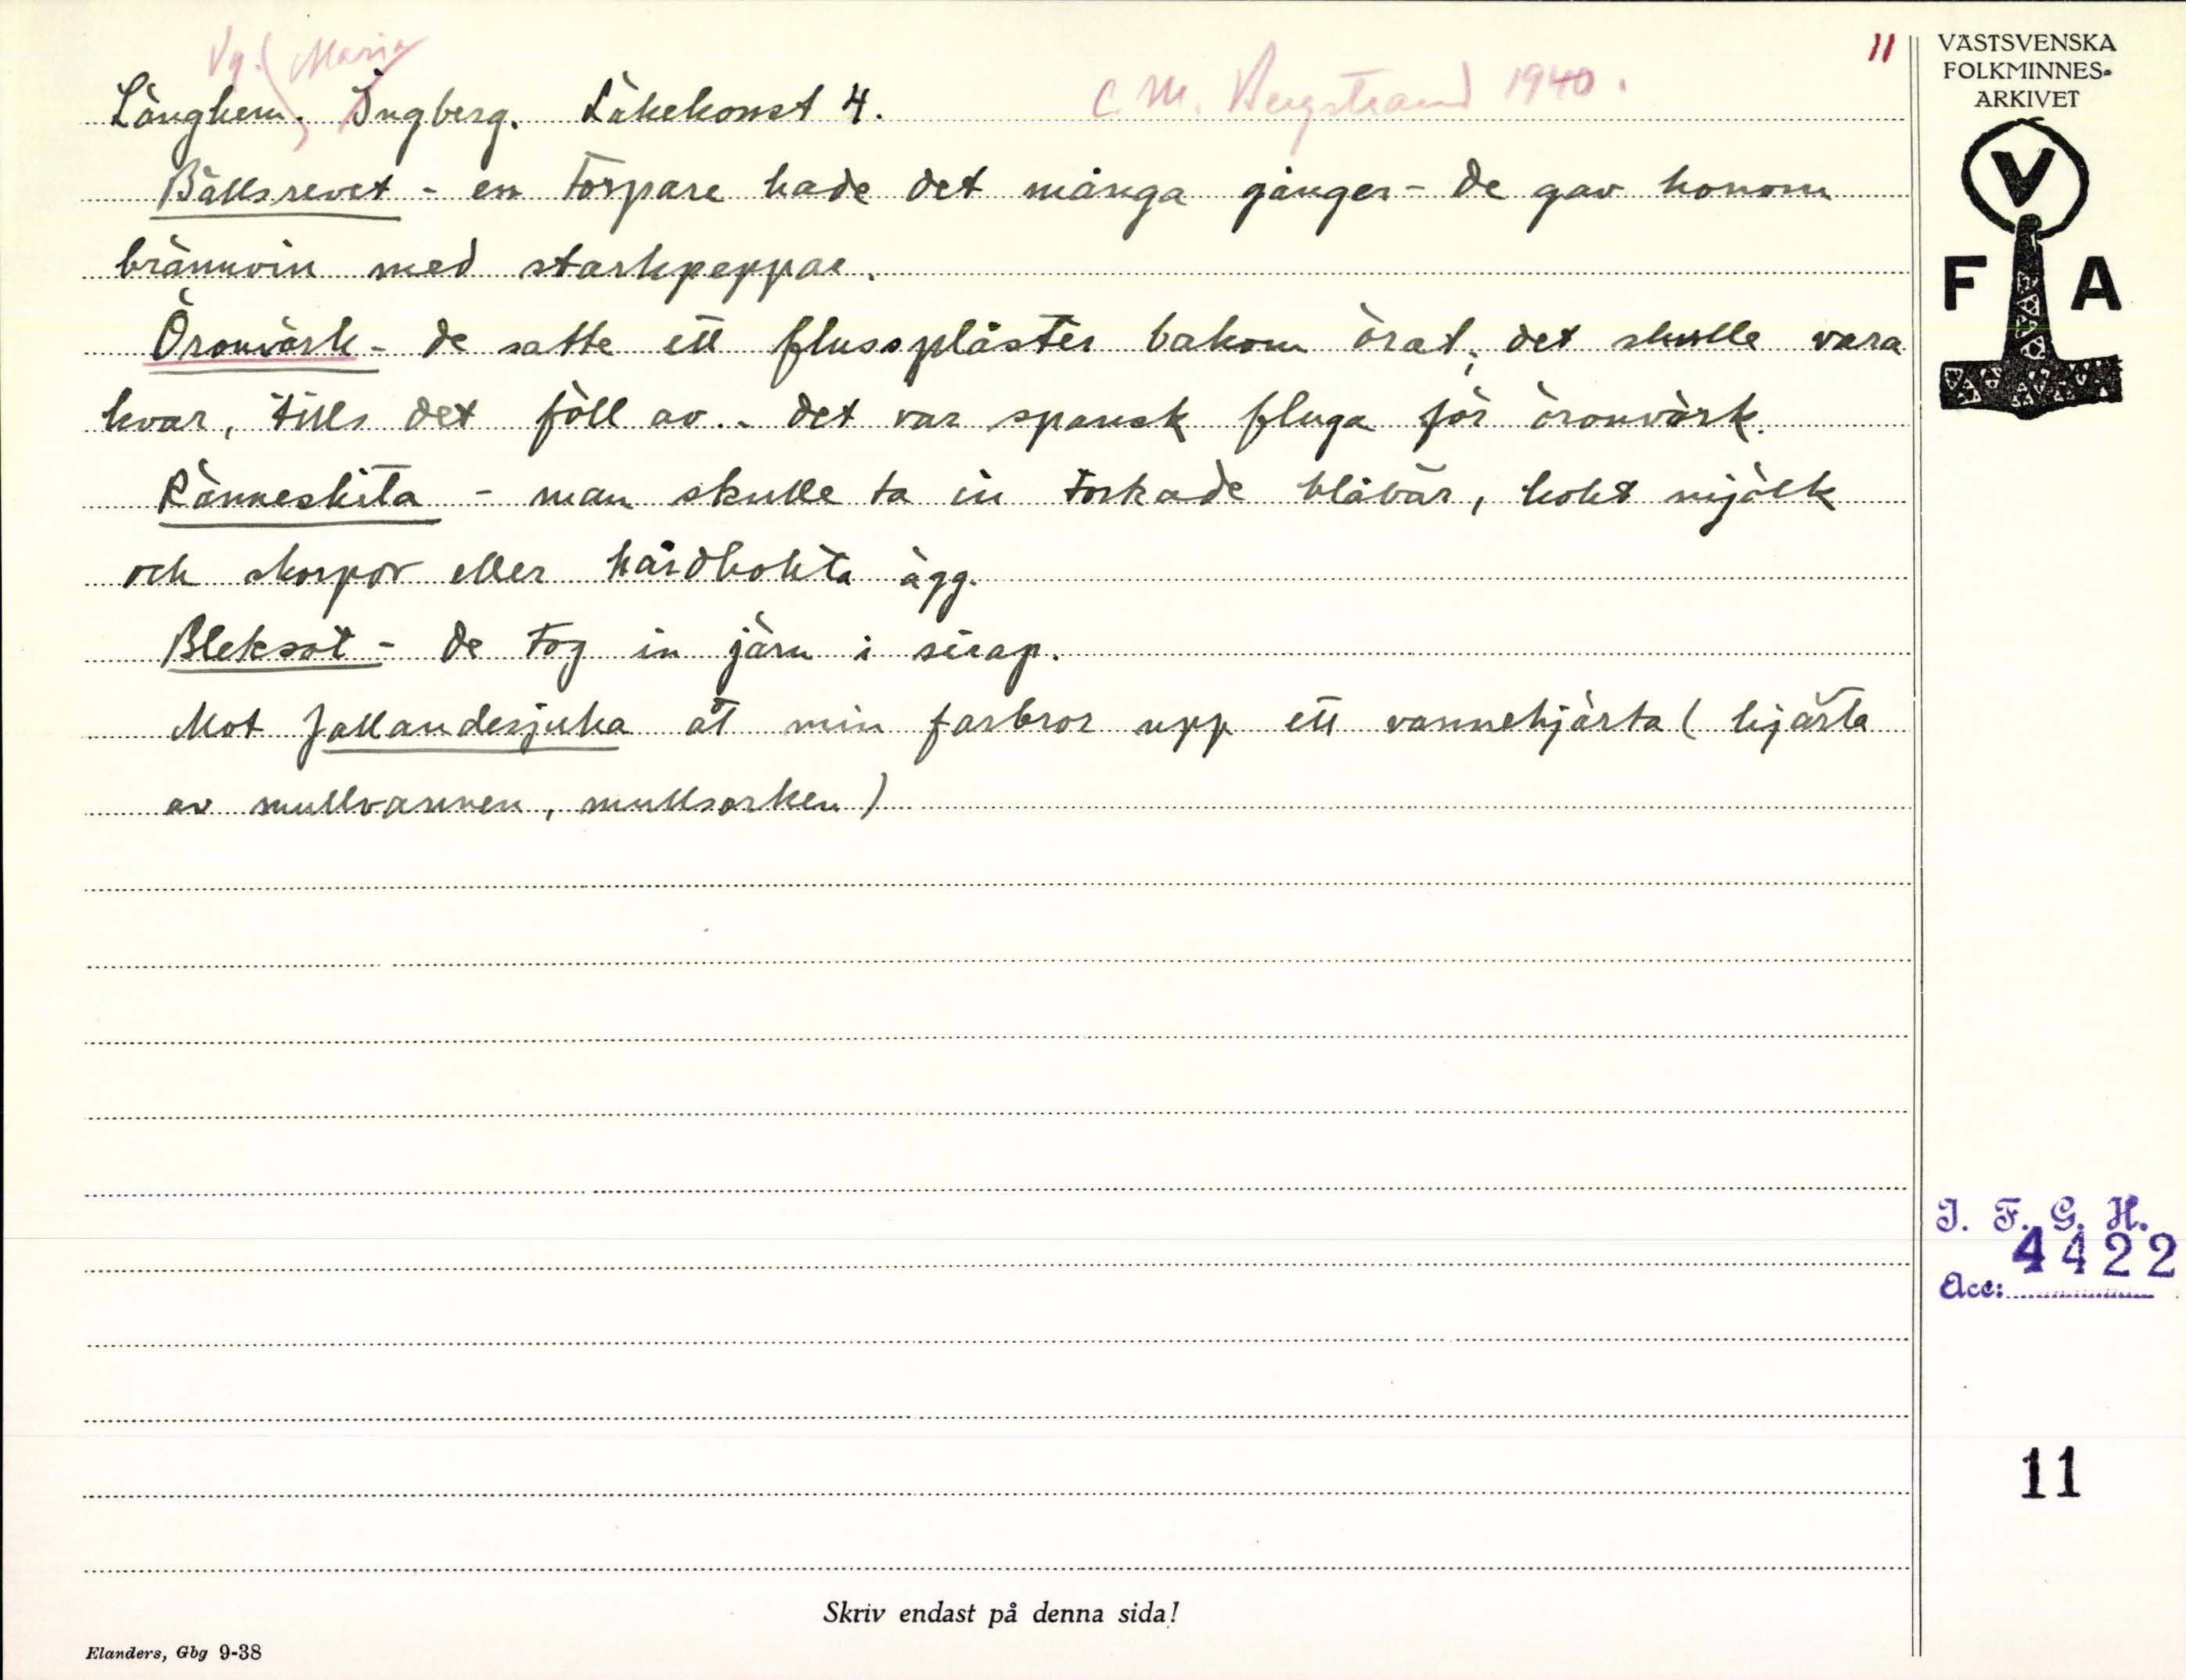 Vg. Maria
11
Långhem, Ingberg. Läkekonst 4.
C M. Bergstrand 1940.
Bållsrevet - en torpare hade det många gånger - de gav honom
brännvin med starkpeppar.
Öronvärk - de satte ett flussplåster bakom örat; det skulle vara
kvar, tills det föll av. - det var spansk fluga för öronvärk.
Ränneskita - man skulle ta in torkade blåbär, kokt mjölk
och skorpor eller hårdkokta ägg.
Bleksot - de tog in järn i sirap.
Mot fallandesjuka åt min farbror upp ett vannehjärta ( hjärta
av mullvannen, mullsorken )
VÄSTSVENSKA
FOLKMINNES-
ARKIVET
V
F A
I. F. G. H.
4422
Acc:
11
Skriv endast på denna sida!
Elanders, Gbg 9-38